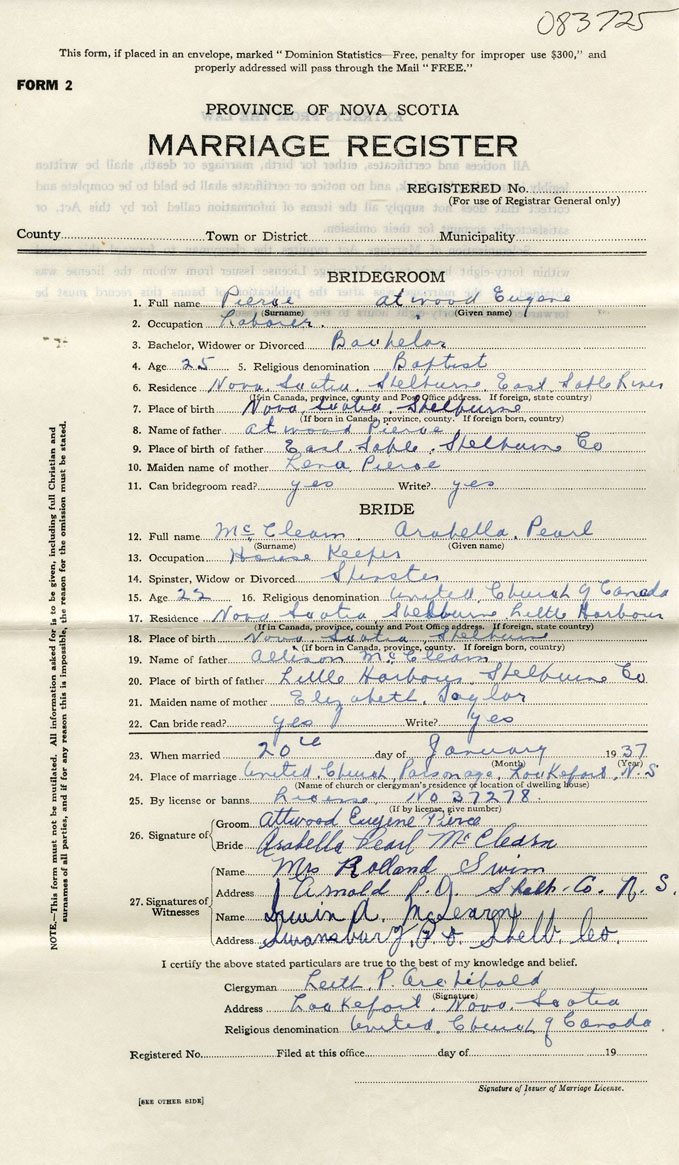 083725
This form, if placed in an envelope, marked "Dominion Statistics—Free, penalty for improper use $300," and
properly addressed will pass through the Mail "FREE."
FORM 2
PROVINCE OF NOVA SCOTIA
MARRIAGE REGISTER
REGISTERED No.
(For use of Registrar General only)
County Town or District Municipality
BRIDEGROOM
1. Full name Pierce atwood Eugene
(Surname) (Given name)
2. Occupation Laborer.
3. Bachelor, Widower or Divorced Bachelor
4. Age 25 5. Religious denomination Baptist
6. Residence Nova Scotia Shelburne East Sable River
(If in Canada, province, county and Post Office address. If foreign, state country)
7. Place of birth Nova Scotia Shelburne
(If born in Canada, province, county. If foreign born, country)
8. Name of father atwood Pierce
9. Place of birth of father East Sable, Shelburne Co
10. Maiden name of mother Lena Pierce
11. Can bridegroom read? yes Write? yes
BRIDE
12. Full name McClearn Arabella Pearl
(Surname) (Given name)
13. Occupation House Keeper
14. Spinster, Widow or Divorced Spinster
15. Age 22 16. Religious denomination United Church of Canada
17. Residence Nova Scotia Shelburne Little Harbour
(If in Canada, province, county and Post Office address. If foreign, state country)
18. Place of birth Nova Scotia Shelburne
(If born in Canada, province, county. If foreign born, country)
19. Name of father Allison McClearn
20. Place of birth of father Little Harbour, Shelburne Co
21. Maiden name of mother Elizabeth Taylor
22. Can bride read? yes Write? yes
23. When married 20th day of January 1937
(Month) (Year)
24. Place of marriage United Church Parsonage, Lockeport, N.S
(Name of church or clergyman's residence or location of dwelling house)
25. By license or banns License No 37278.
(If by license, give number)
26. Signature of Groom Attwood Eugene Pierce
Bride Arabella Pearl McClearn
27. Signatures of Witnesses
Name Mrs Rolland Swim
Address Arnold P.O. Shelb. Co. N.S.
Name Irwin A. McLearn
Address Swansburg P.O Shelb Co.
I certify the above stated particulars are true to the best of my knowledge and belief.
Clergyman Leith P. Archibald
(Signature)
Address Lockeport, Nova Scotia
Religious denomination United Church of Canada
Registered No. Filed at this office day of 19
Signature of Issuer of Marriage License.
[SEE OTHER SIDE]
NOTE.—This form must not be mutilated. All information asked for is to be given, including full Christian and
surnames of all parties, and if for any reason this is impossible, the reason for the omission must be stated.